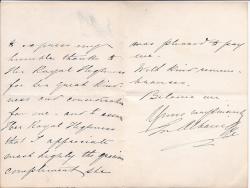 to express my
humble thanks to
Her Royal Highness
for her great kind-
ness and consideration
for me - and to assure
Her Royal Highness
that I appreciate
most highly the gracious
compliment she
was pleased to pay
me.
With kind remem-
brances.
Believe me
Yours very sincerely